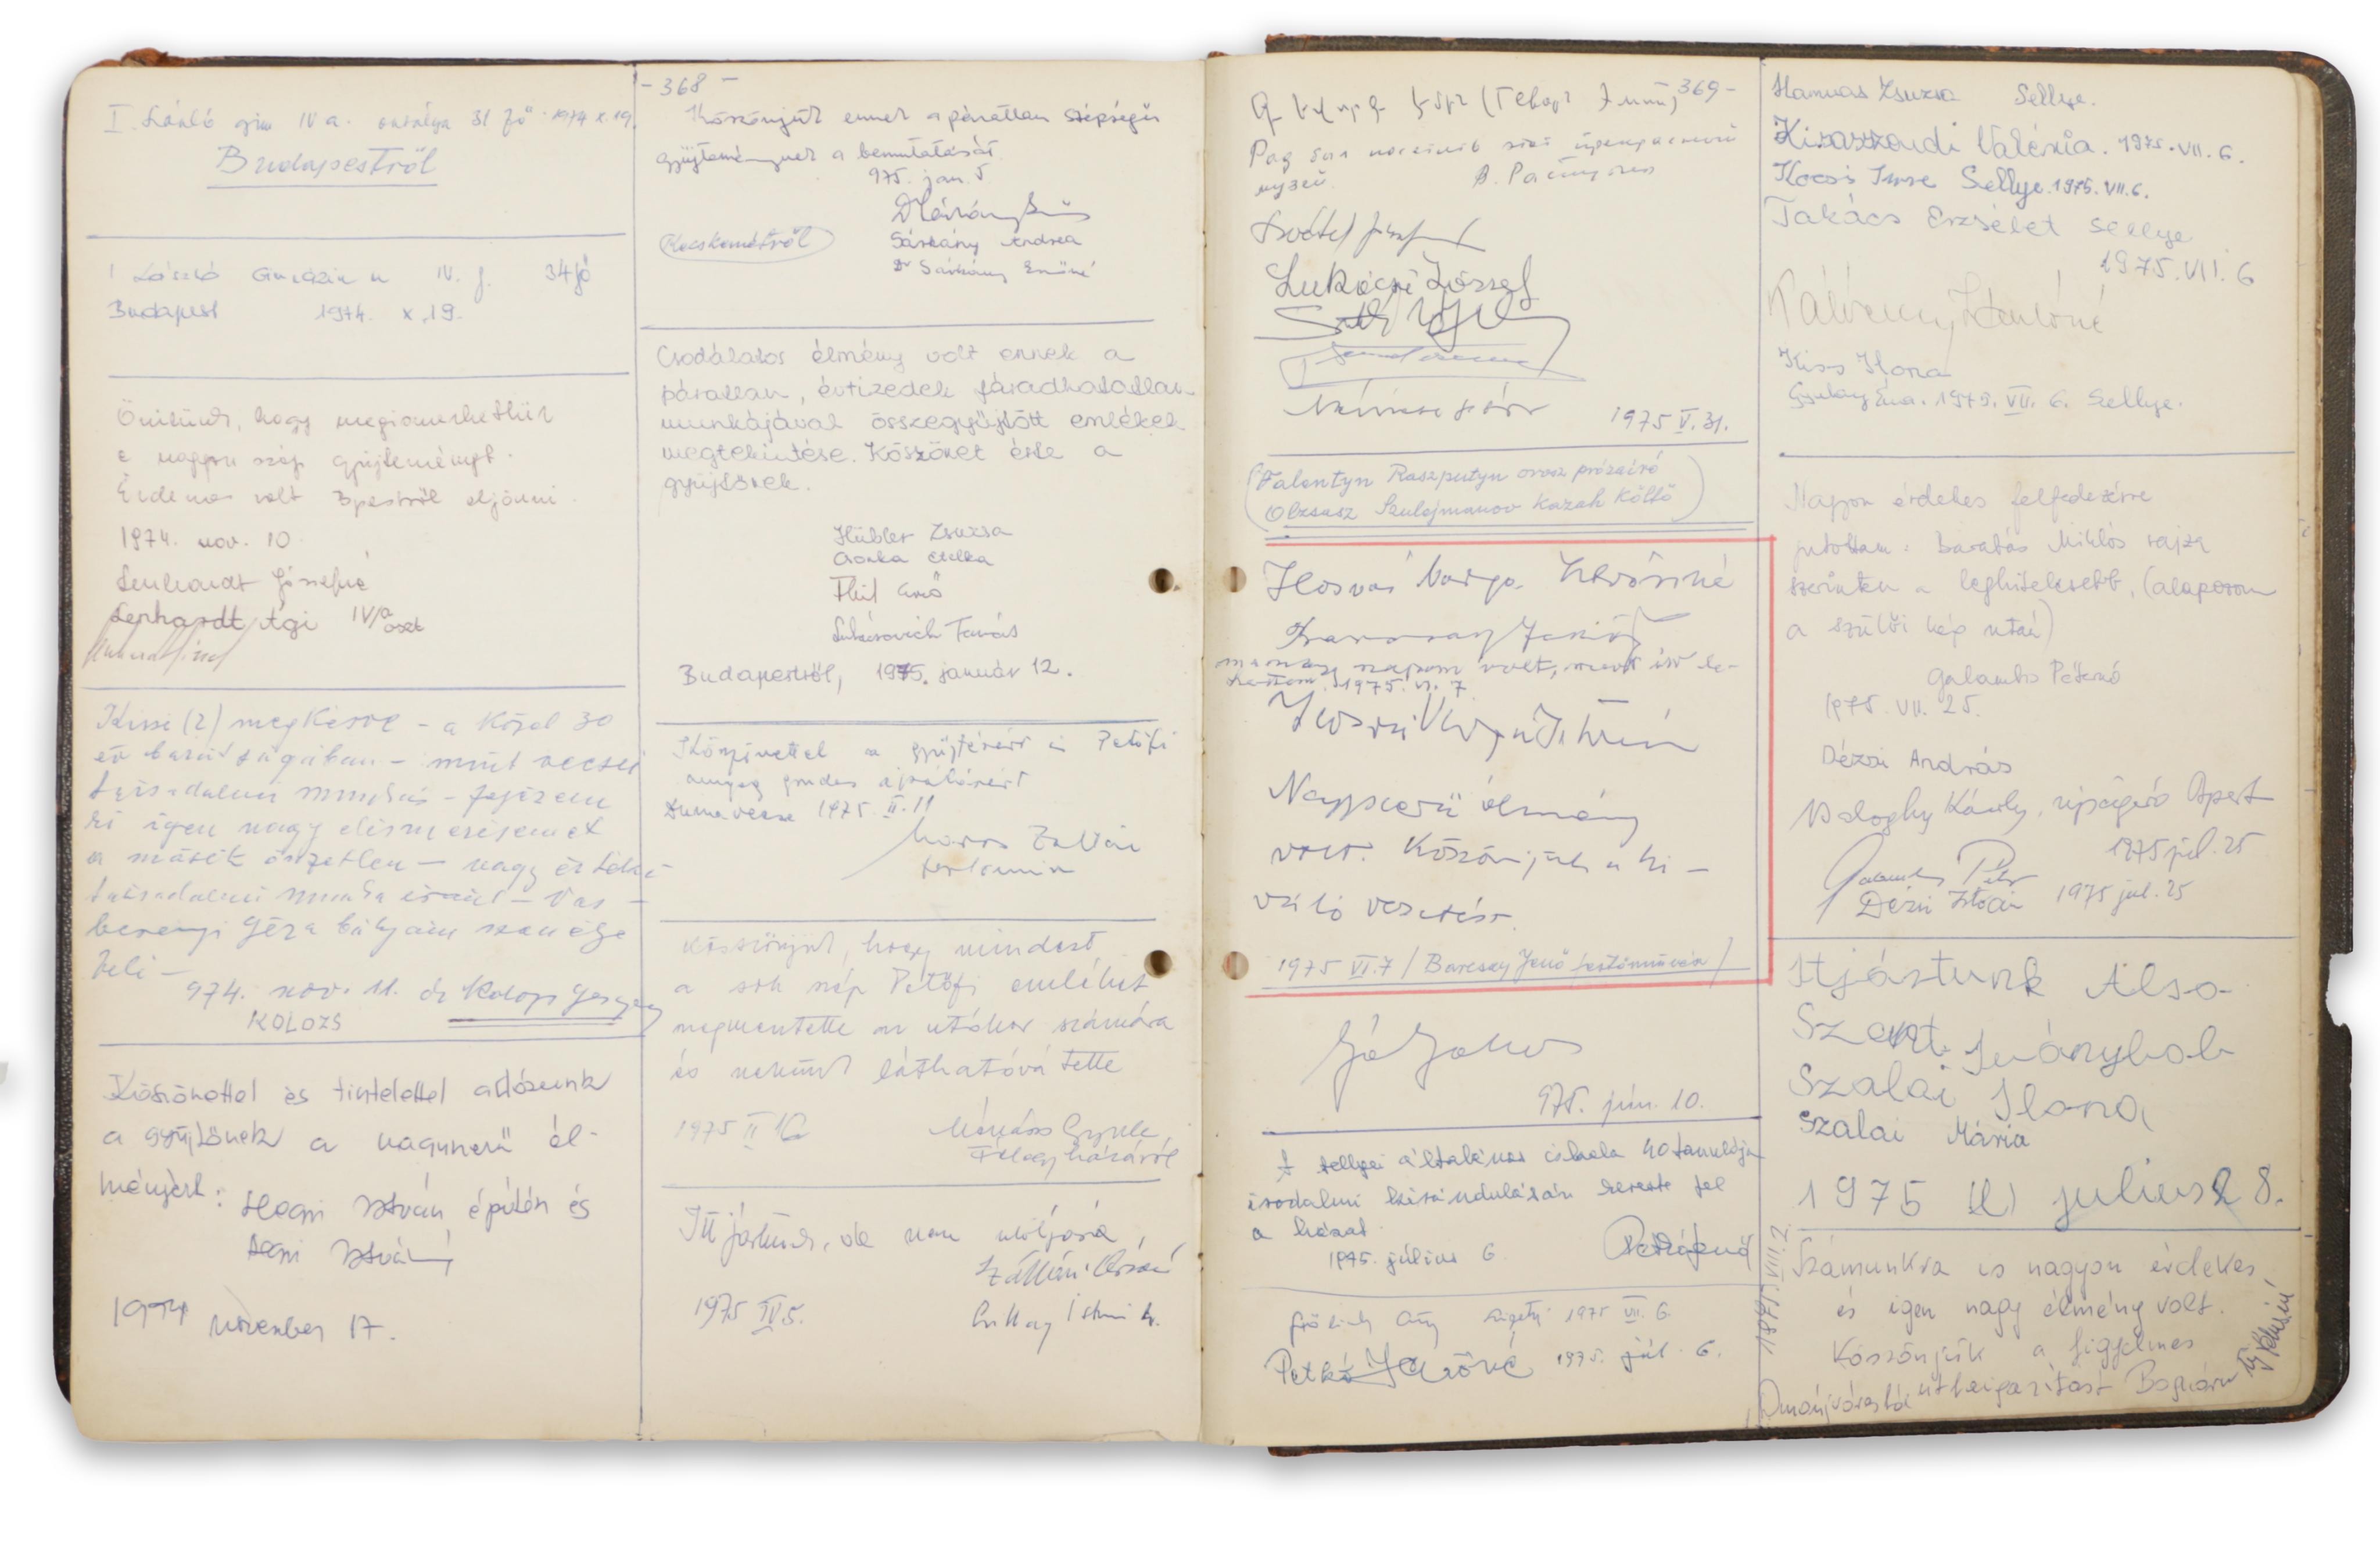 I. László gim IV a. osztálya 31 fő 1974 X. 19.
Budapestről
I László Gimnázium IV. f. 34 fő
Budapest 1974. X. 19.
Örülünk, hogy megismerhettük
e nagyon szép gyűjteményt.
Érdemes volt Bpestről eljönni.
1974. nov. 10
Lenhardt Józsefné
Lenhardt Ági IV/a oszt
Kissé (2) megkésve – a közel 30
év barátságában – mint
társadalmi munkás – fejezem
ki igen nagy elismerésemet
a másik önzetlen – nagy értékű
társadalmi munka iránt – Vas
berényi Géza bátyám
974. nov. 11. dr Kolozs Gergely
KOLOZS
Köszönettel és tisztelettel adózunk
a gyűjtőnek a nagyszerű él-
ményért: Hegyi István építőn és
Hegyi Istvánné
1974 november 17.
- 368 -
Köszönjük ennek a páratlan szépségű
gyűjteménynek a bemutatását
975. jan. 5
Kecskemétről
Sárkány Andrea
Dr Sárkány Ernőné
Csodálatos élmény volt ennek a
páratlan, évtizedek fáradhatatlan
munkájával összegyűjtött emlékek
megtekintése. Köszönet érte a
gyűjtőnek.
Hübler Zsuzsa
Csonka Etelka
Thil Ernő
Lukácsovich Tamás
Budapestről, 1975. január 12.
Köszönettel a gyűjtésért és Petőfi
anyag gondos ápolásáért
Dunavecse 1975. II. 11
Moros Zoltán
Köszönjük, hogy mindezt
a sok szép Petőfi emléket
megmentette az utókor számára
és nekünk láthatóvá tette
1975 II 16
Mészáros Gyula
Félegyházáról
Itt jártunk, de nem utoljára,
1975 IV 5.
369 -
музей В. Распутин
Lukácsi József
1975 V. 31.
(Valentyin Raszputyin orosz prózaíró
Olzsasz Szulejmanov kazah költő)
Ilosvai Varga Istvánné
Barcsay Jenő
nagyon volt, mert itt le-
hettem. 1975. VI. 7
Ilosvai Varga István
Nagyszerű élmény
volt. Köszönjük a ki-
váló vezetést.
1975 VI. 7 / Barcsay Jenő festőművész /
975. jún. 10.
A sellyei általános iskola 40 tanulója
irodalmi kirándulásán kereste fel
a házat
1975. július 6.
1975 VII. 6.
Petkó Jenőné 1975. júl. 6.
Hamvas Zsuzsa Sellye.
Kisasszondi Valéria. 1975. VII. 6.
Kocsis Imre Sellye. 1975. VII. 6.
Takács Erzsébet Sellye
1975. VII. 6
Kálvenczy Istvánné
Kiss Ilona
Gyulay Éva. 1975. VII. 6. Sellye.
Nagyon érdekes felfedezésre
jutottam: Barabás Miklós rajza
szerintem a leghitelesebb, (alaposan
a szülői kép után)
Galambos Péterné
1975. VII. 25.
Dézsi András
Baloghy Károly, újságíró Bpest
1975 júl. 25
Galambos Péter
Dézsi István 1975 júl. 25
Itjártunk Alsó-
Szent Iványból
Szalai Ilona
Szalai Mária
1975 július 28.
Számunkra is nagyon érdekes,
és igen nagy élmény volt.
Köszönjük a figyelmes
útbaigazítást
Dunaújvárosból
1975. VIII. 2.